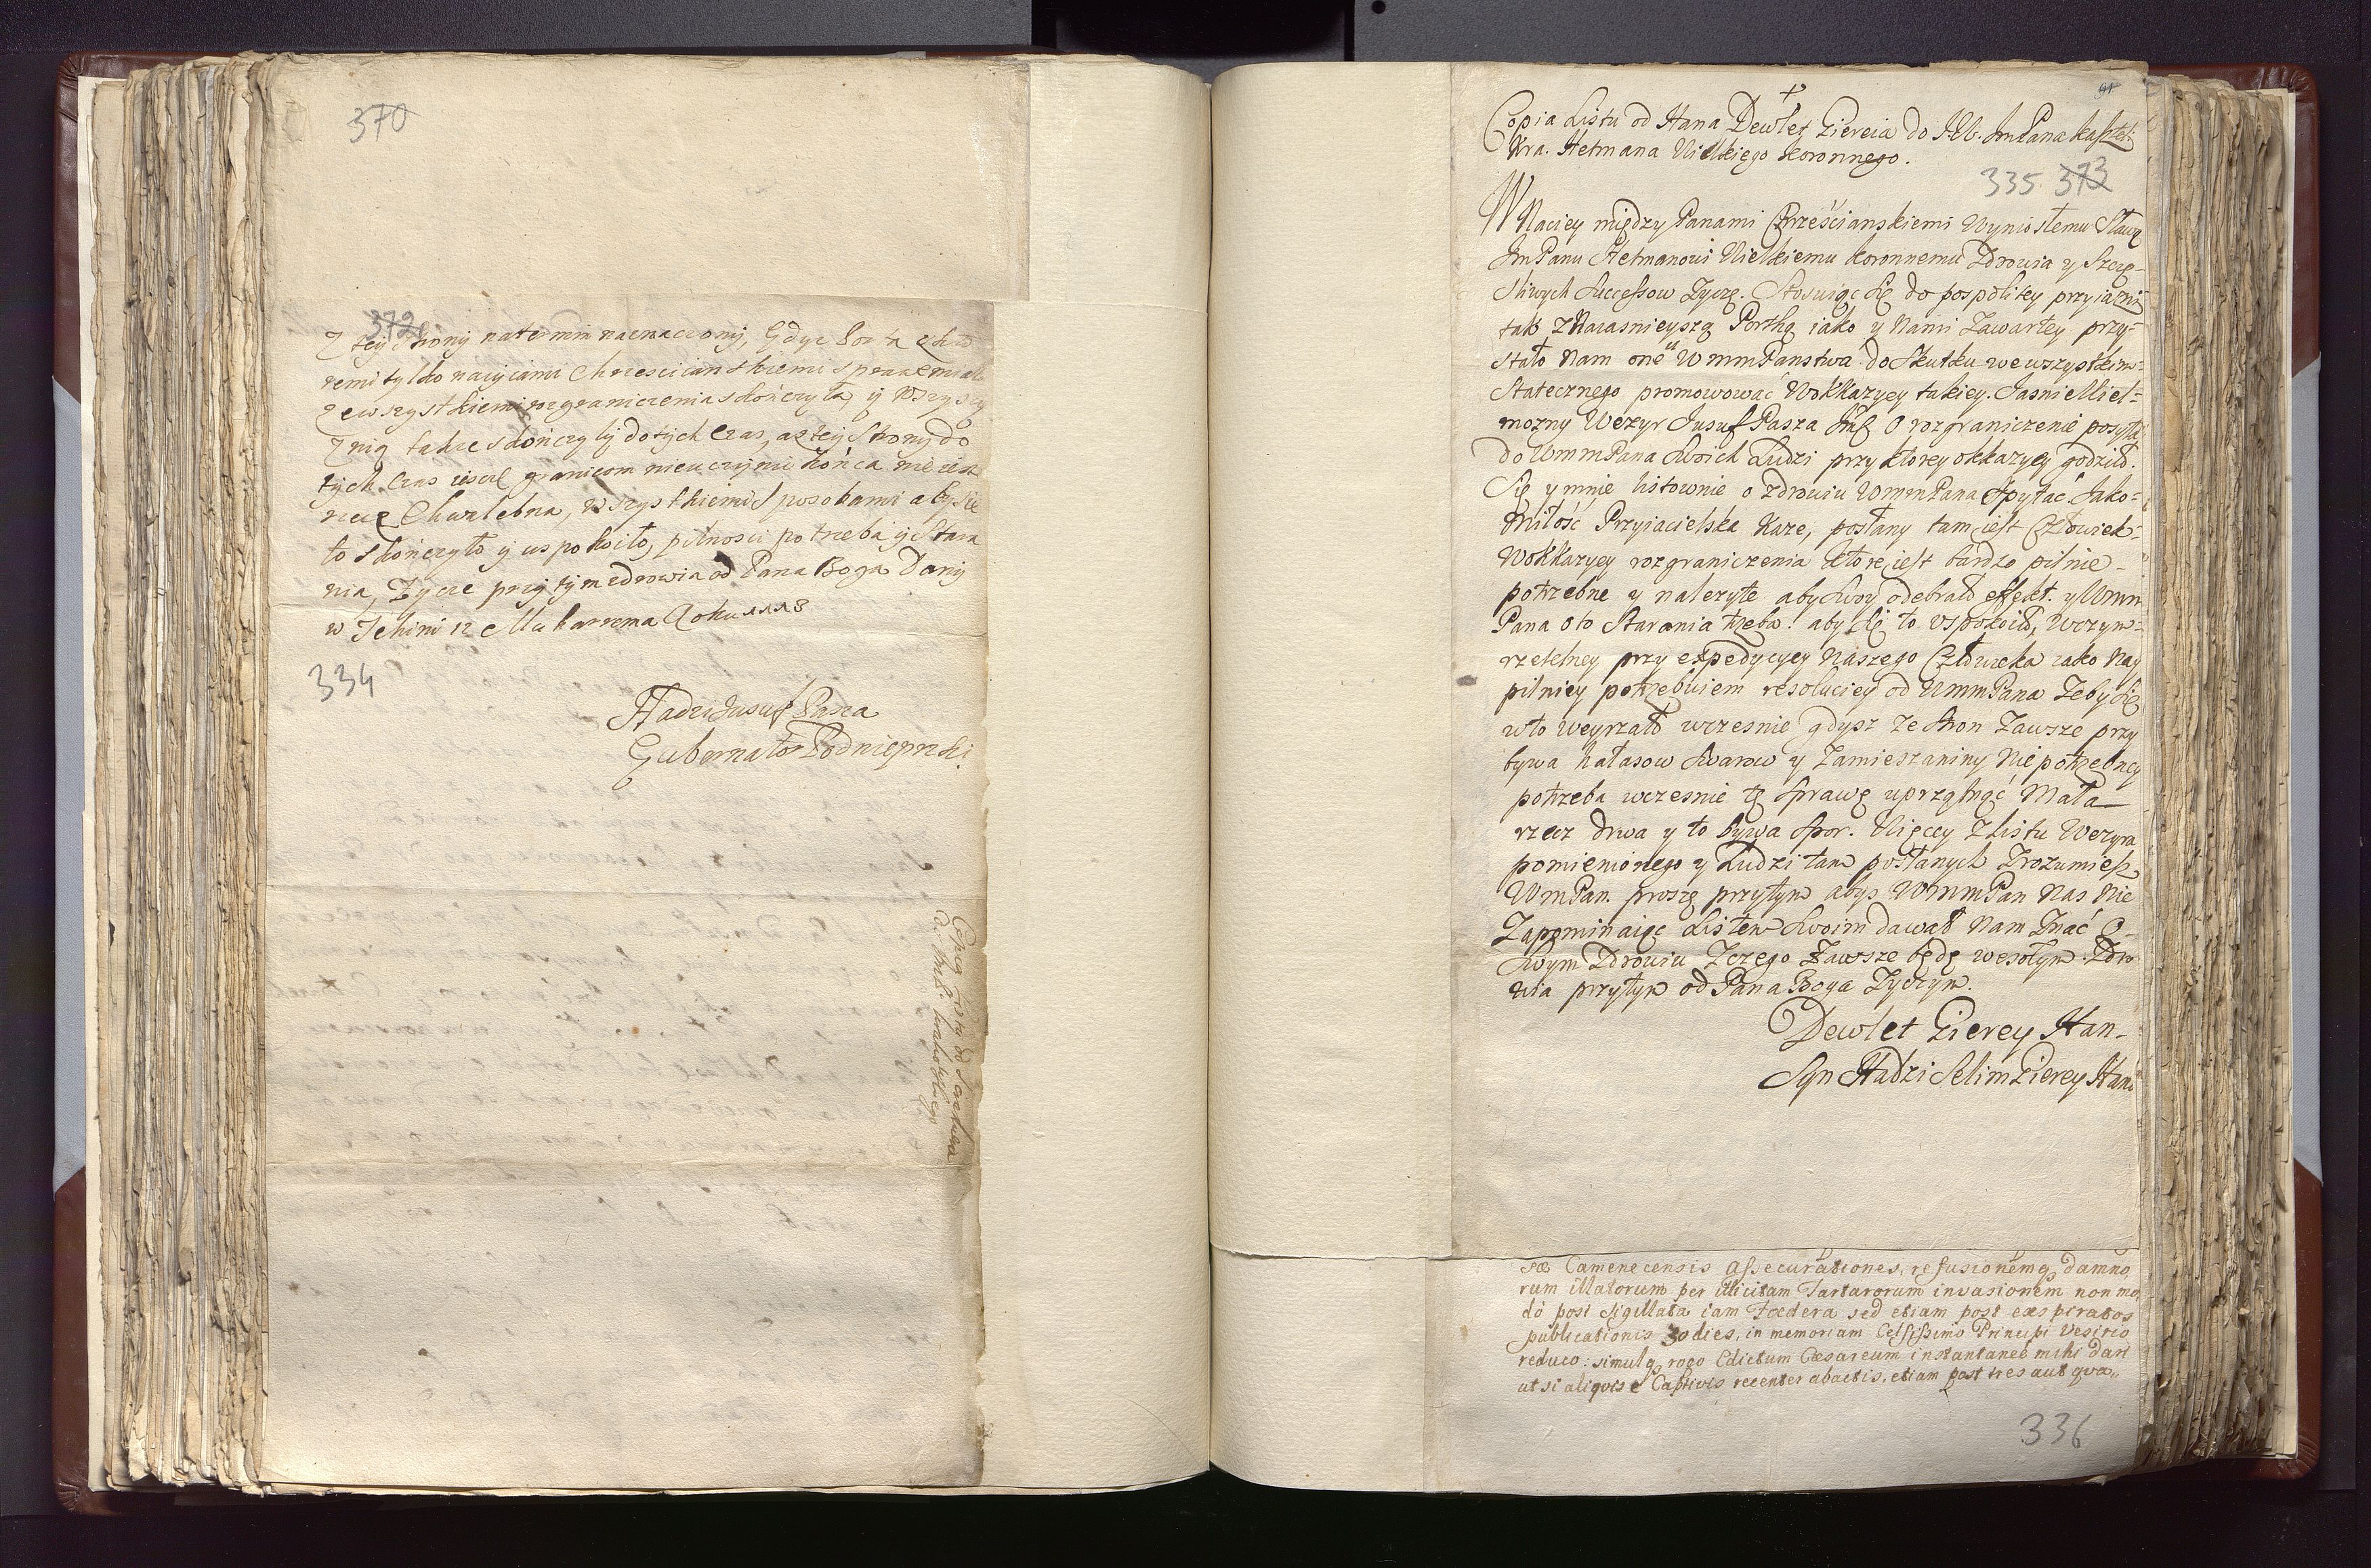 370
372
z tey strony na termin naznaczony, Gdyż Porta z któ
remi tylko nacyiami Chrzescianskiemi sprawę miała
ze wszystkiemi rozgraniczenia skończyła, y Wszyscy
z nią także skończyly dotych czas, a z tey strony do
tych czas ieszcze granicom nieuczynic końca nie iest
rzecz Chwalebna, wszystkiemi sposobami aby sie
to skończyło y uspokoiło, pilnosci potrzeba y stara
nia, Zycze przytym zdrowia od Pana Boga Dany
w Tehini 12 Mukarrema Roku 1118
334
Hadzi Jusuf Pasza
Gubernator Podnieprski.
Copia Listu od Seraskiera
do Jmści krakowskiego
91
Copia Listu od Hana Dewlet Giereia do J.W. Jm Pana Kasztel:
Kra. Hetmana Wielkiego Koronnego.
335 373
W Naciey między Panami Chrześcianskiemi Wyniosłemu Sławą
Jm Panu Hetmanowi Wielkiemu Koronnemu Zdrowia y Szczę-
śliwych Successow Zyczę. Stosuiąc się do pospolitey przyiazni
tak z Naiasnieyszą Porthą iako y Nami Zawartey przy-
stało Nam one WmmPanstwa do skutku we wszystkim
Statecznego promowować Wokkazyey takiey. Jasnie Wiel-
mozny Wezyr Jusuf Pasza Jmść O rozgraniczenie posyła
do WmmPana Swoich Ludzi przy ktorey okkazyey godziło
się y mnie listownie o zdrowiu WmmPana spytać Jako
miłość Przyiacielska Kaze, posłany tam iest Człowiek
Wokkazyey rozgraniczenia ktore iest bardzo pilnie
potrzebne y nalezyte aby swoy odebrało effekt. y Wmm
Pana o to Starania trzeba. aby się to Vspokoiło, Wczym
rzetelney przy expedycyey Naszego Człowieka iako Nay
pilniey potrzebuiem resoluciey od WmmPana Zeby się
wto weyrzało wczesnie gdysz ze stron Zawsze przy
bywa hałasow swarow y Zamieszaniny Niepotrzebney
potrzeba wczesnie tę sprawę uprzątnąć Mała
rzecz drwa y to bywa spor. Więcey z listu Wezyra
pomienionego y Ludzi tam posłanych Zrozumiesz
WmPan. proszę przytym abys WmmPan Nas Nie
Zapominaiąc Listem Swoim dawał Nam Znać O
swym Zdrowiu Z czego Zawsze będę wesołym. Zdro
wia przytym od Pana Boga Zyczym.
Dewlet Gierey Han
Syn Hadzi Selim Gierey Hana
Camenecensis assecurationes, refusionemq damno
rum illatorum per illicitam Tartarorum invasionem non mo
do post sigillata iam Foedera sed etiam post exspiratos
publicationis 30 dies, in memoriam Celsissimo Principi Vesirio
reduco: simulq rogo Edictum Caesareum instantanee mihi dari
ut si aliquis e Captivis recenter abactis, etiam post tres aut qva„
336